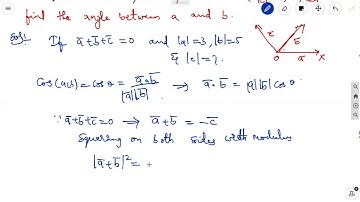 find the angle between a and b.
Sol: If ā+b̄+c̄=0 and |a|=3, |b|=5
& |c|=7.
c b̄ O ā X
Cos(a,b)=cosθ = ā•b̄ / |ā||b̄| ⟹ ā•b̄ = |ā||b̄| cosθ
∵ ā+b̄+c̄=0 ⟹ ā+b̄ = -c̄
Squaring on both sides with modulus
|ā+b̄|² =